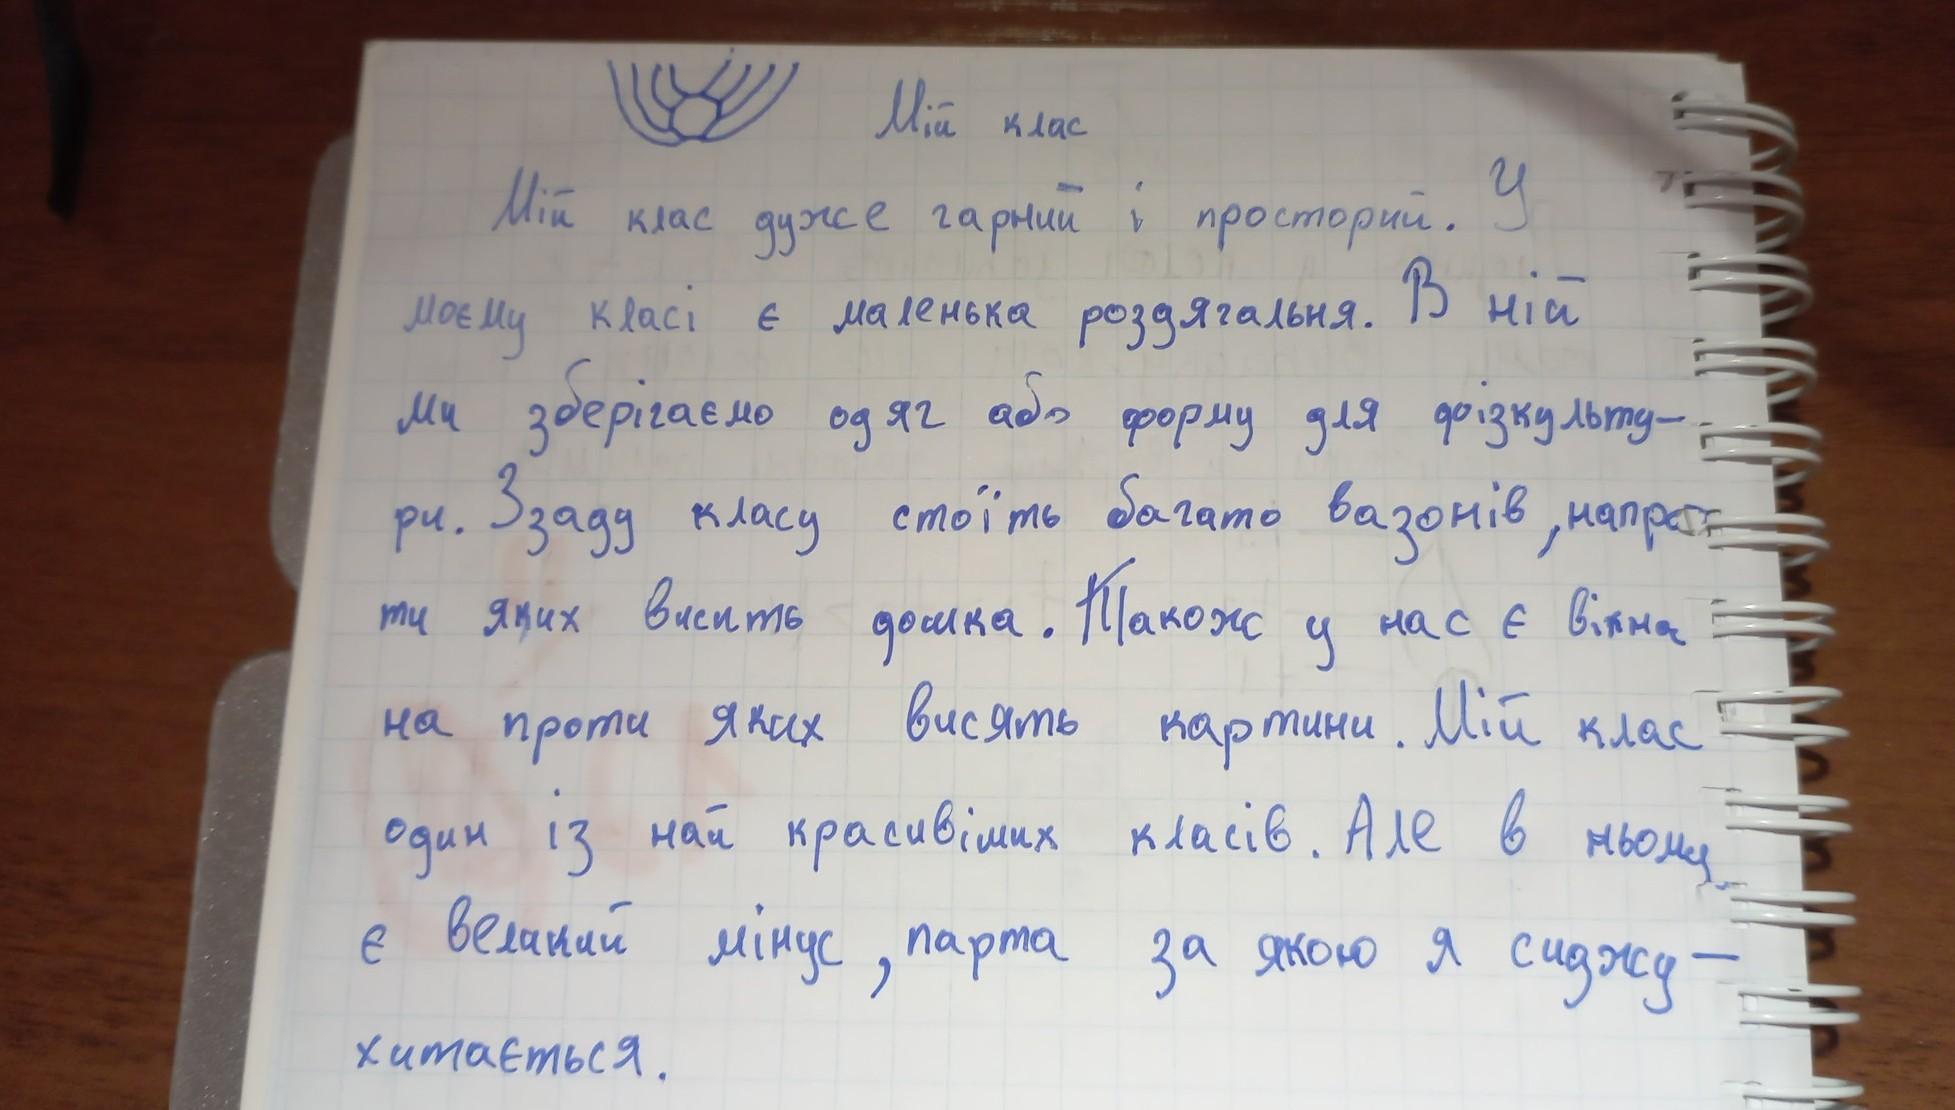 Мій клас
Мій клас дуже гарний і просторий. У
моєму класі є маленька роздягальня. В ній
ми зберігаємо одяг або форму для фізкульту-
ри. Ззаду класу стоїть багато вазонів, напро-
ти яких висить дошка. Також у нас є вікна
на проти яких висять картини. Мій клас
один із най красивіших класів. Але в ньому
є великий мінус, парта за якою я сиджу -
хитається.